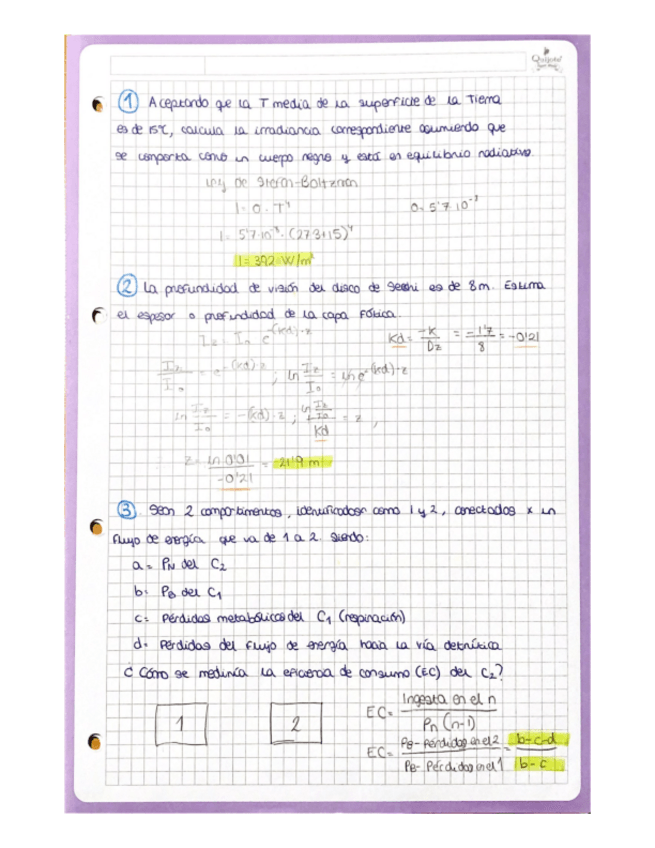 Quijote
1 Aceptando que la T media de la superficie de la Tierra
es de 15ºC, calcula la irradiancia correspondiente asumiendo que
se comporta como un cuerpo negro y está en equilibrio radiativo.
Ley de Stefan-Boltzman
I = σ · T⁴ σ = 5'7·10⁻⁸
I = 5'7·10⁻⁸ · (273+15)⁴
I = 392 W/m²
2 La profundidad de visión del disco de Secchi es de 8m. Estima
el espesor o profundidad de la capa fótica.
Iz = I₀ e^-(kd)·z Kd = -K/Dz = -1'7/8 = -0'21
Iz/I₀ = e^-(kd)·z ; ln Iz/I₀ = ln e^-(kd)·z
ln Iz/I₀ = -(kd)·z ; ln Iz/I₀ / Kd = z ,
z = ln 0'01 / -0'21 = 21'9 m
3. Sean 2 compartimentos, identificados como 1 y 2, conectados x un
flujo de energía que va de 1 a 2. Siendo:
a = PN del C2
b = PB del C1
c = Pérdidas metabólicas del C1 (respiración)
d = Pérdidas del flujo de energía hacia la vía detrítica
¿Cómo se mediría la eficiencia de consumo (EC) del C2?
1 2 EC = Ingesta en el n / Pn (n-1)
EC = PB - pérdidas en el 2 / PB - Pérdidas en el 1 = b-c-d / b-c